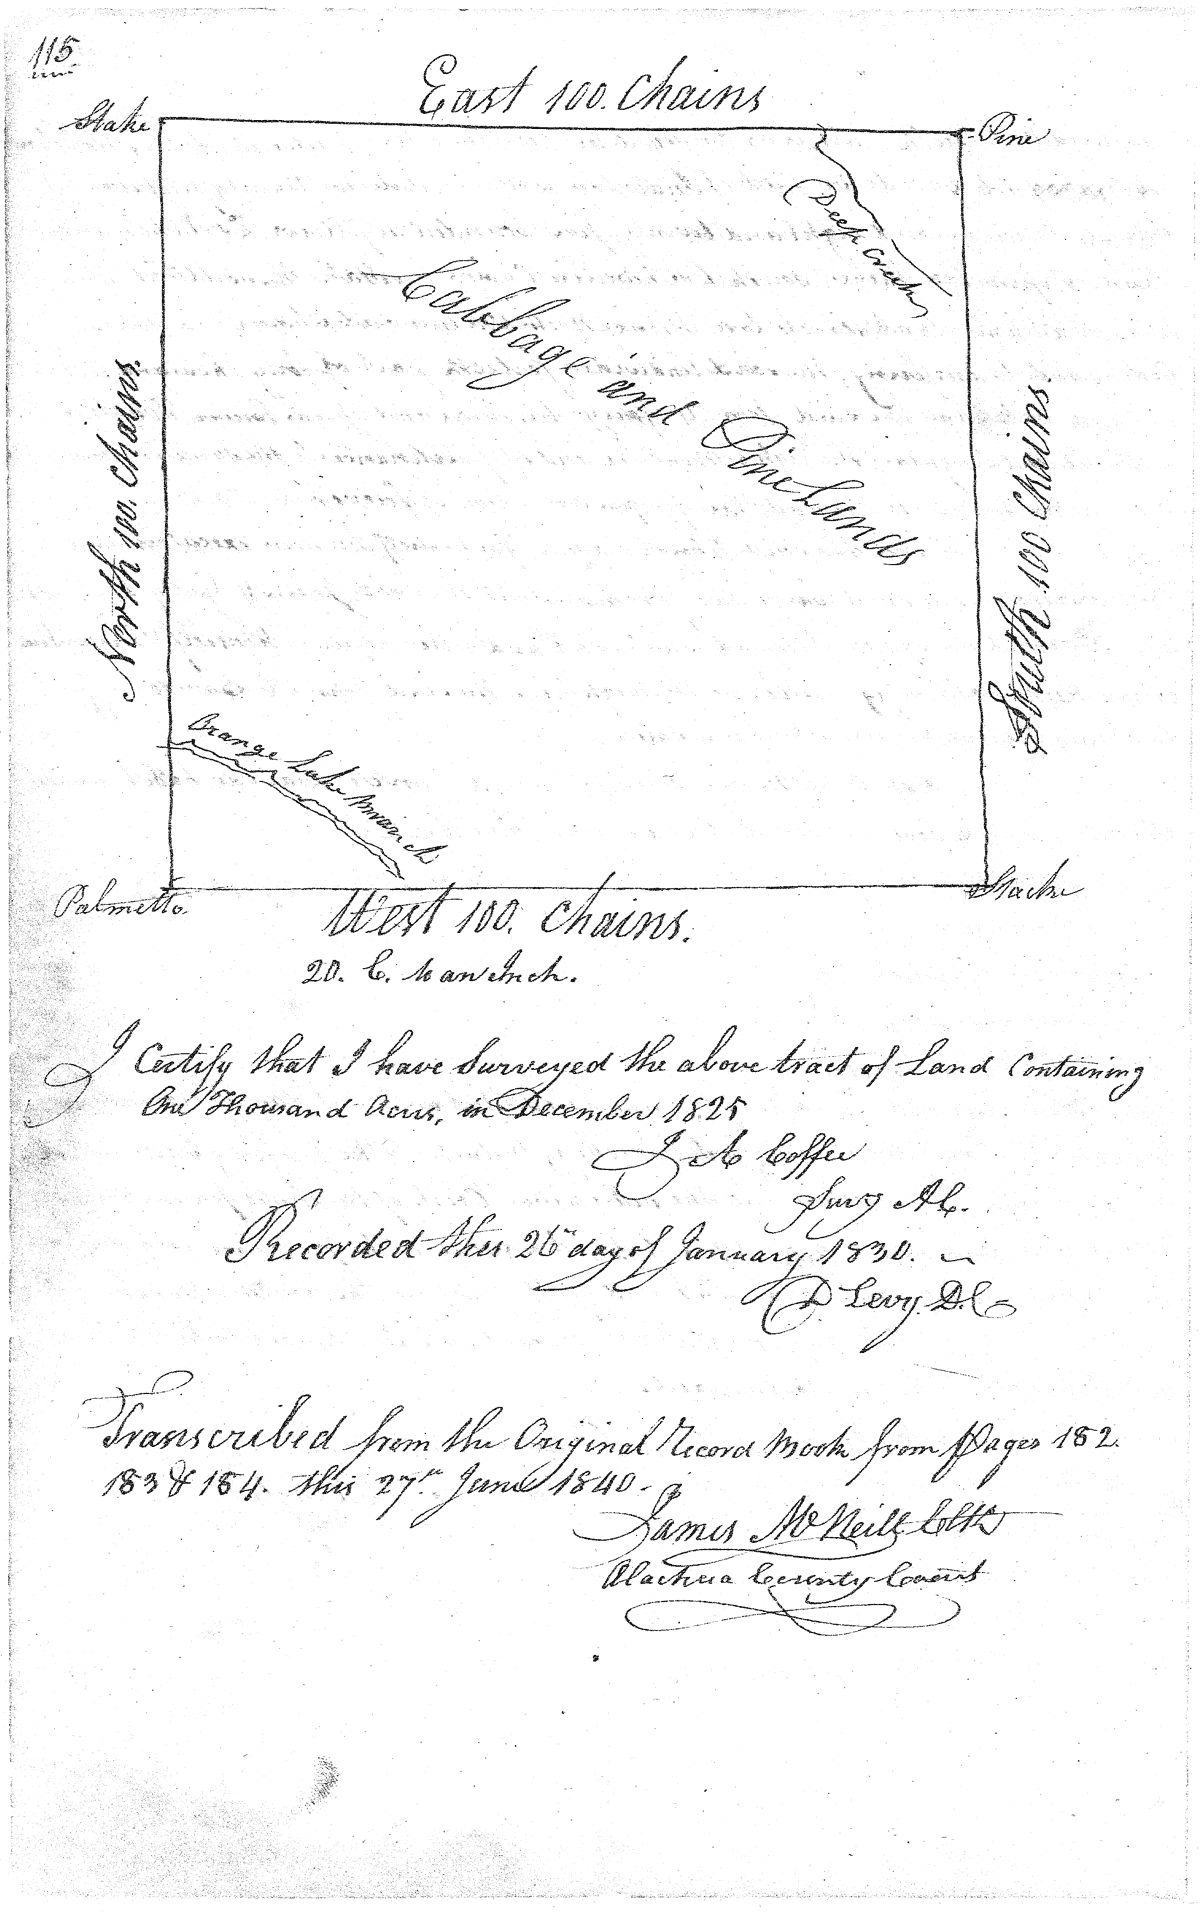 115
East 100. Chains
Stake
Pine
Deep Creek
Cabbage and Pine Lands
North 100. Chains.
South 100 Chains.
Orange Lake
Palmetto.
Stacke
West 100. Chains.
20. C. to an Inch.
I Certify that I have Surveyed the above tract of Land Containing
One Thousand Acres, in December 1825
J A Coffee
Survy A C.
Recorded this 26th day of January 1830.
D Levy. D. C
Transcribed from the Original Record Book from Pages 182.
183 & 184. this 27th June 1840.
James McNeill Clk
Alachua County Court